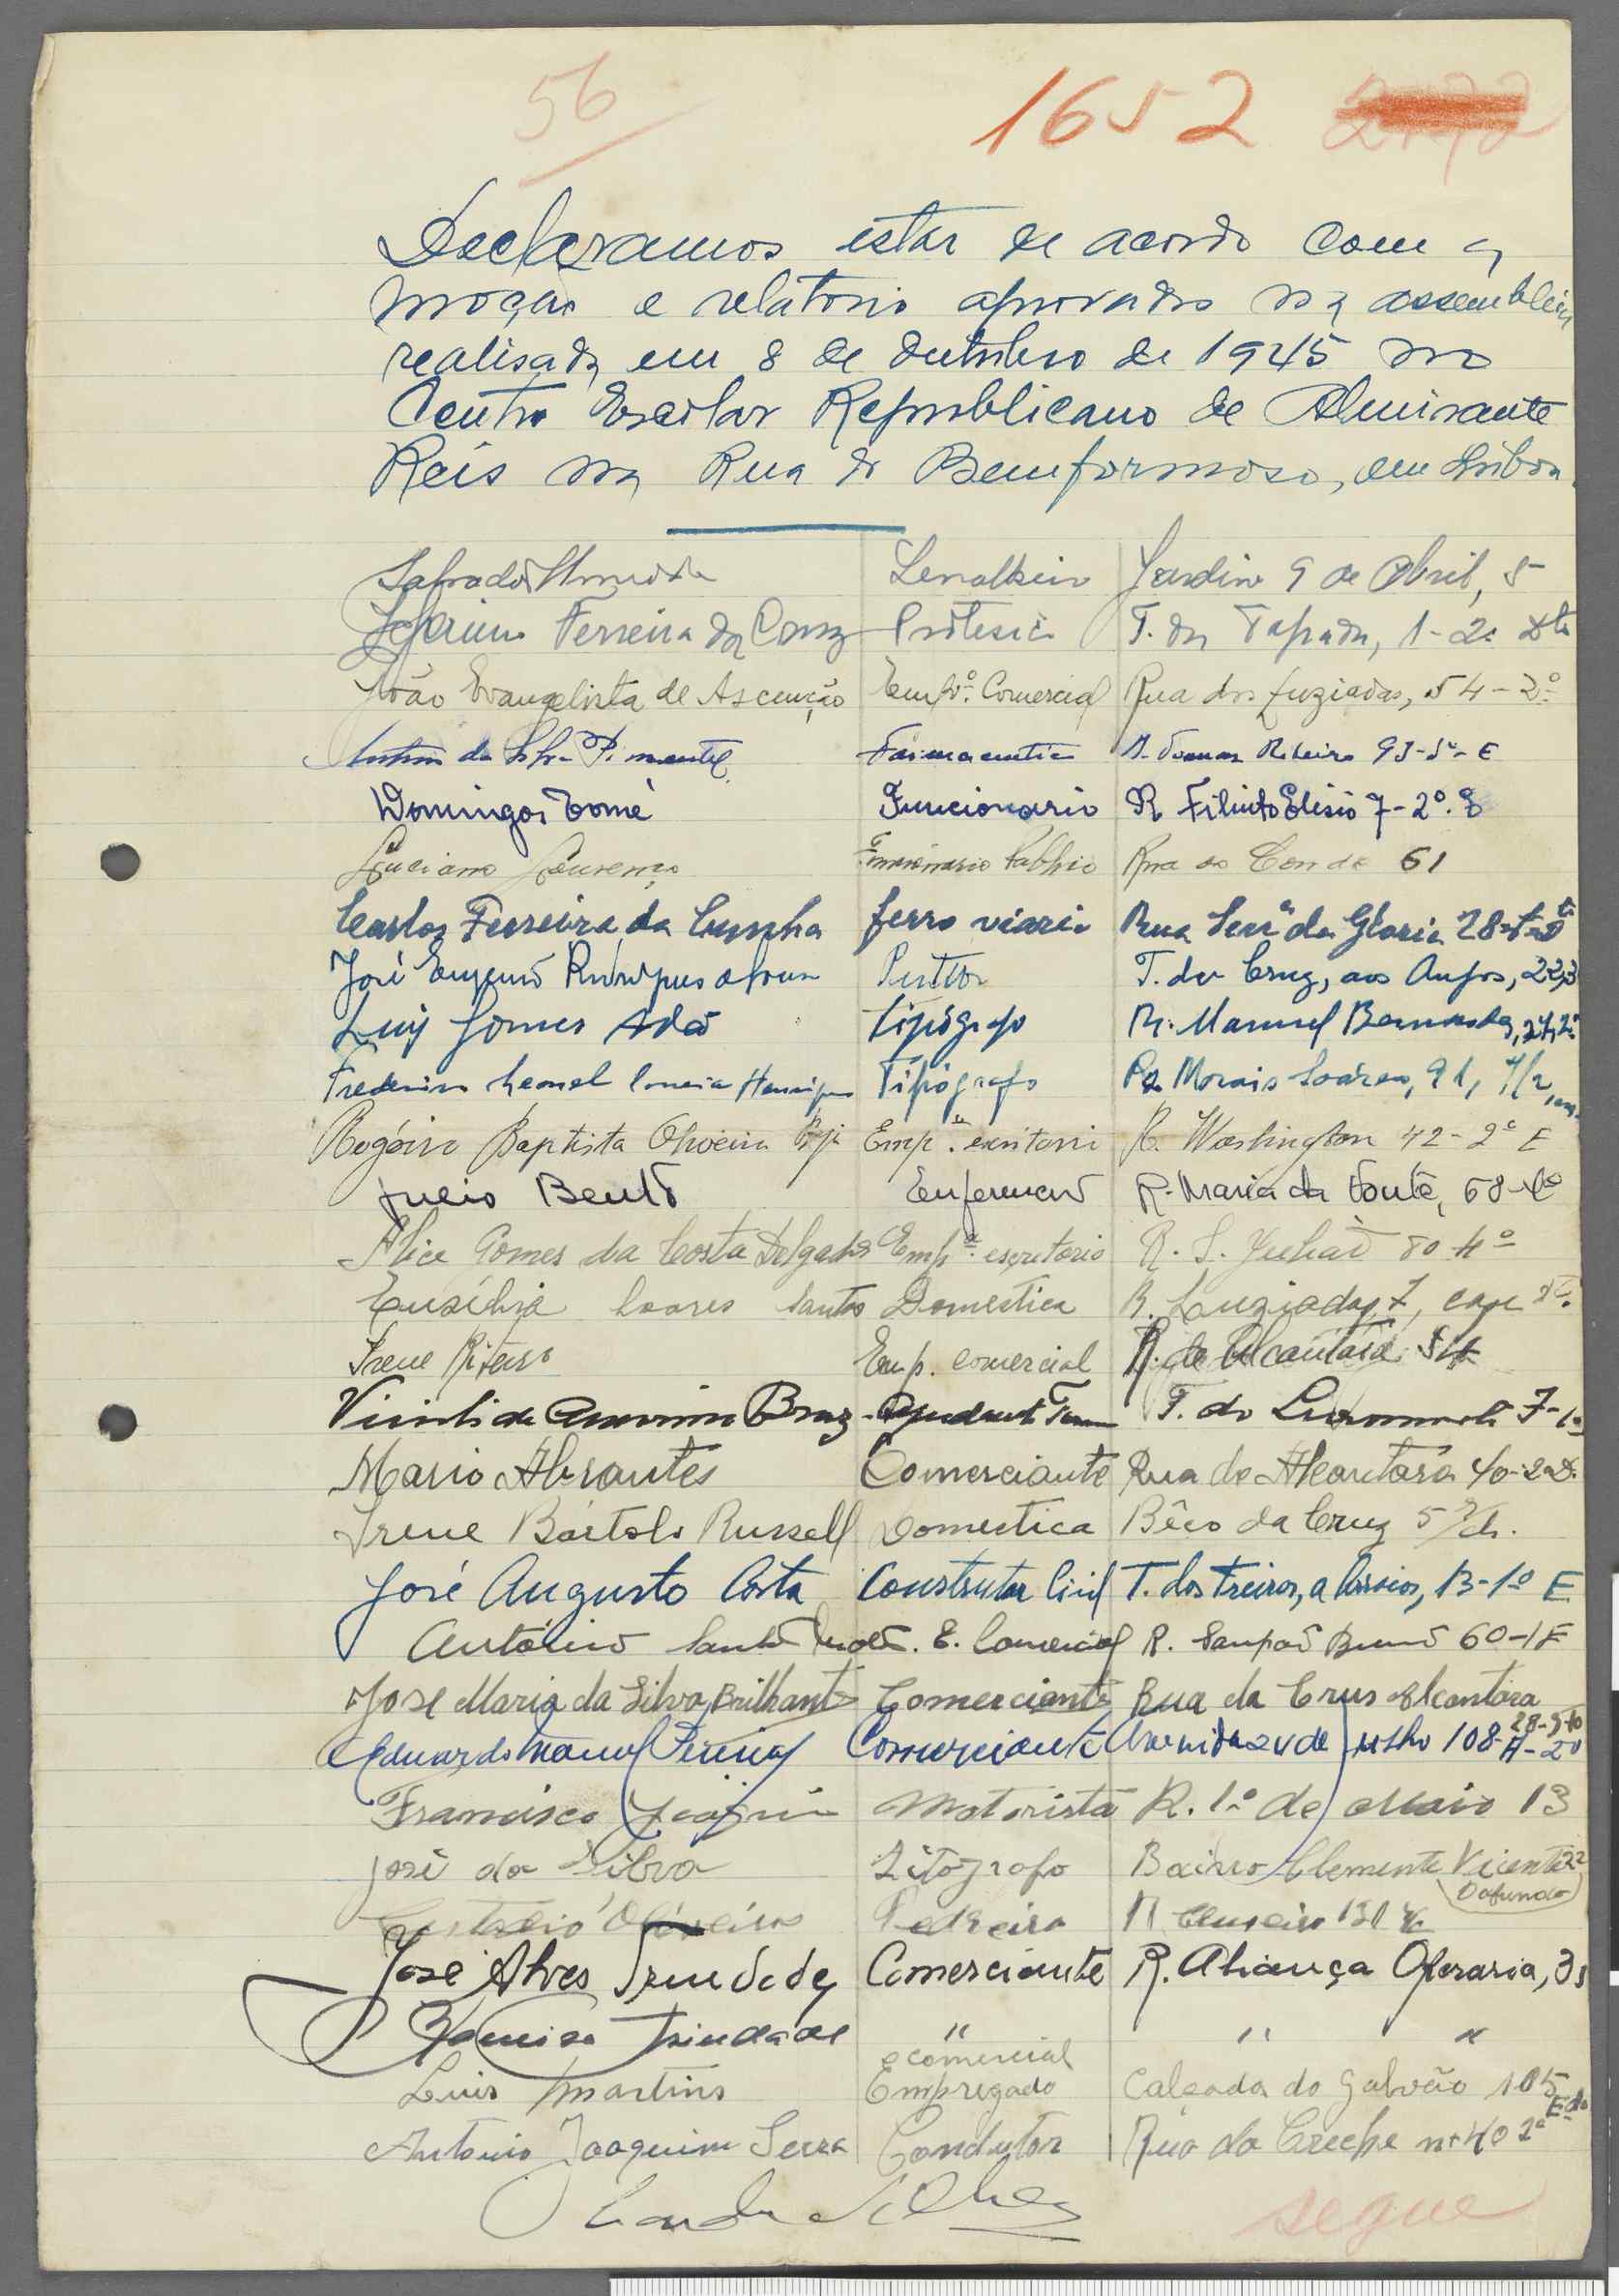 56
1652
Declaramos estar de acordo com a
moção e relatorio aprovados na assembleia
realisada em 8 de Outubro de 1945 no
Centro Escolar Republicano de Almirante
Reis na Rua do Bemformoso, em Lisboa.
Salvador Almeida Serralheiro Jardim 9 de Abril, 5
Ferreira da Cruz T. da Tapada, 1-2º Dtº
João Evangelista de Ascenção Empº. Comercial Rua dos Luziadas, 54-2º
da Silva Pimentel Farmaceutico R. Tomaz Ribeiro 93-5º-E
Domingos Tomé Funcionario R Filinto Elisio 7-2º. E
Luciano Lourenço Funcionario Publico Rua do Conde 61
Carlos Ferreira da Cunha ferro viario Rua Senrª da Gloria 28
José Eugenio Rodrigues Pintor T. da Cruz, aos Anjos, 22,3
Luiz Gomes Adão tipógrafo R. Manuel Bernardes, 27, 2º
Frederico Leonel Correia Henriques Tipógrafo Morais Soares, 91,
Rogério Baptista Oliveira Empº. escritorio R. Washington 42-2º E
Julio Bento Enfermeiro R. Maria da Fonte, 68
Alice Gomes da Costa Delgado Empª. escritorio R. S. Julião 80 4º
Eusébia Soares Santos Domestica R. Luziadas 7, cave
Irene Emp. comercial R. de Alcantara 54
de Amorim Braz T. do Livramento 7-1º
Mario Abrantes Comerciante Rua de Alcantara 40-2º D.
Irene Bártolo Russell Domestica Bêco da Cruz 5 r/ch.
José Augusto Costa Construtor Civil T. dos Freiros, a Arroios, 13-1º E
António Santos E. Comercial R. Sampaio Bruno 60-1 E
José Maria da Silva Brilhante Comerciante Rua da Crus Alcantara
28-3º
Eduardo Manuel Comerciante Avenida 24 de Julho 108-A-2º
Francisco Joaquim Motorista R. 1º de Maio 13
José da Silva Litógrafo Bairro Clemente Vicente 22
Dafundo
Custodio Oliveira Pedreiro R Cruzeiro 131
José Alves Trindade Comerciante R. Aliança Operaria, 31
Trindade " " "
comercial
Luis Martins Empregado Calçada do Galvão 105
Antonio Joaquim Serra Condutor Rua da Creche nº 40 2º
segue